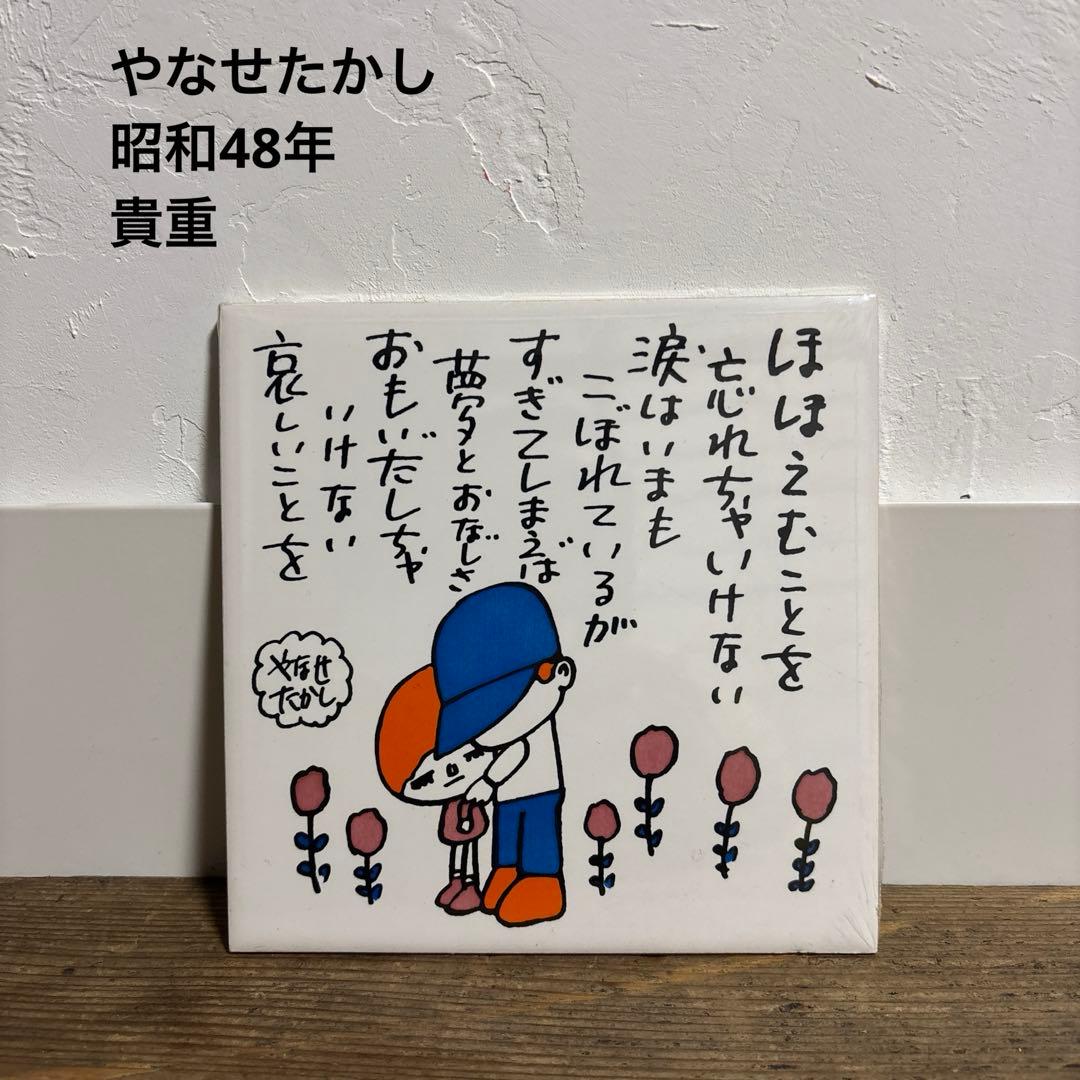 やなせたかし
昭和48年
貴重
ほほえむことを
忘れちゃいけない
涙はいまも
こぼれているが
すぎてしまえば
夢とおなじさ
おもいだしちゃ
いけない
哀しいことを
やなせ
たかし